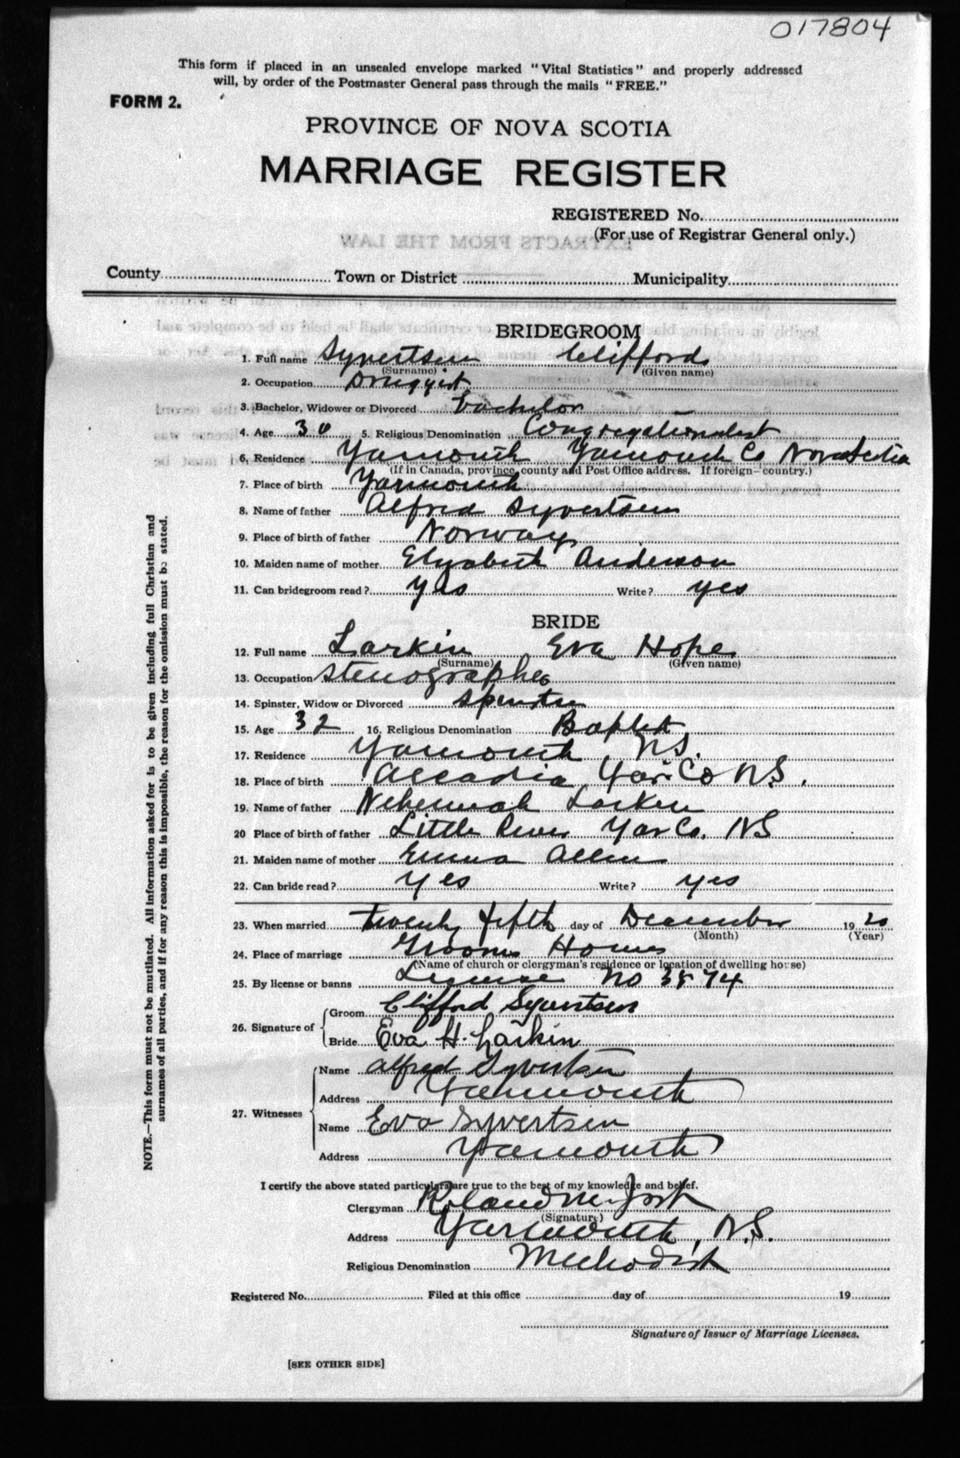 017804
This form if placed in an unsealed envelope marked "Vital Statistics" and properly addressed
will, by order of the Postmaster General pass through the mails "FREE."
FORM 2.
PROVINCE OF NOVA SCOTIA
MARRIAGE REGISTER
REGISTERED No.
(For use of Registrar General only.)
EXTRACTS FROM THE LAW
County Town or District Municipality
BRIDEGROOM
1. Full name Syvertsen Clifford
(Surname) (Given name)
2. Occupation Druggist
3. Bachelor, Widower or Divorced Bachelor
4. Age 30 5. Religious Denomination Congregationalist
6. Residence Yarmouth Yarmouth Co Nova Scotia
(If in Canada, province county and Post Office address. If foreign—country.)
7. Place of birth Yarmouth
8. Name of father Alfred Syvertsen
9. Place of birth of father Norway
10. Maiden name of mother Elizabeth Anderson
11. Can bridegroom read? yes Write? yes
BRIDE
12. Full name Larkin Eva Hope
(Surname) (Given name)
13. Occupation Stenographer
14. Spinster, Widow or Divorced Spinster
15. Age 32 16. Religious Denomination Baptist
17. Residence Yarmouth N.S.
18. Place of birth Arcadia Yar Co N.S.
19. Name of father Nehemiah Larkin
20 Place of birth of father Little River Yar Co. NS
21. Maiden name of mother Emma Allen
22. Can bride read? Yes Write? yes
23. When married twenty fifth day of December 1920
(Month) (Year)
24. Place of marriage Grooms Home
(Name of church or clergyman's residence or location of dwelling house)
25. By license or banns License No 3874
26. Signature of Groom Clifford Syvertsen
Bride Eva H. Larkin
27. Witnesses
Name Alfred Syvertsen
Address Yarmouth
Name Eva Syvertsen
Address Yarmouth
I certify the above stated particulars are true to the best of my knowledge and belief.
Clergyman
(Signature)
Address Yarmouth, N.S.
Religious Denomination Methodist
Registered No. Filed at this office day of 19
Signature of Issuer of Marriage Licenses.
[SEE OTHER SIDE]
NOTE.—This form must not be mutilated. All information asked for is to be given including full Christian and
surnames of all parties, and if for any reason this is impossible, the reason for the omission must be stated.